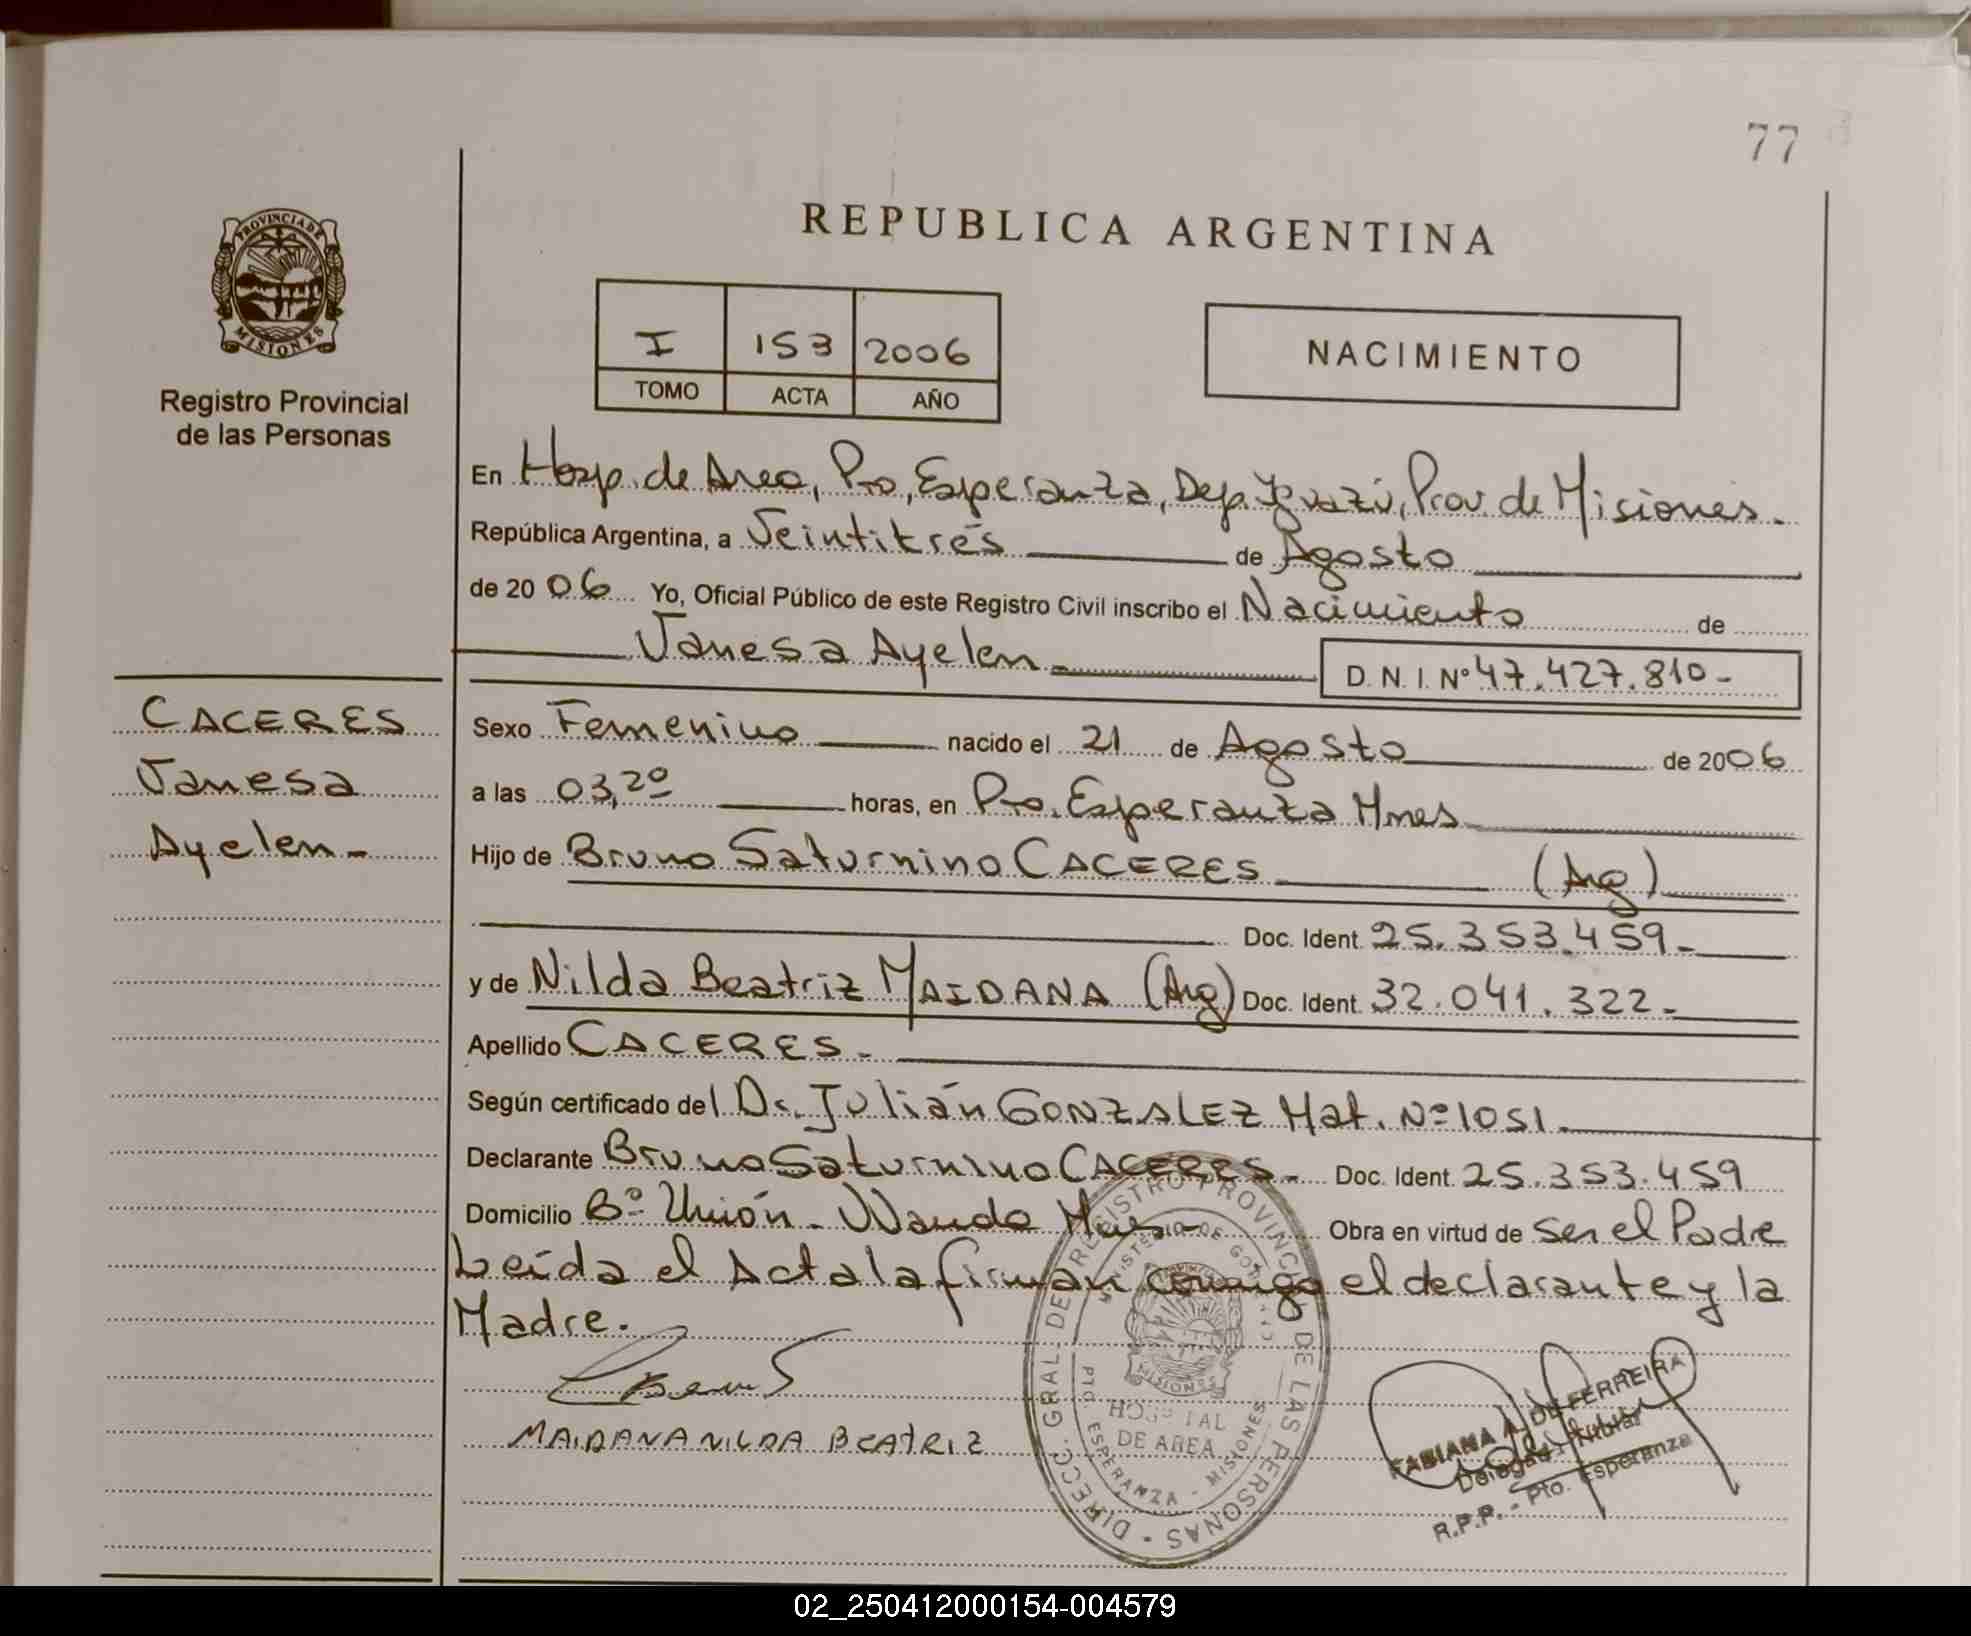 77
REPUBLICA ARGENTINA
PROVINCIA DE
MISIONES
Registro Provincial
de las Personas
I 153 2006
TOMO ACTA AÑO
NACIMIENTO
En Hosp. de Area, Pto, Esperanza, Dep. Iguazú, Prov. de Misiones.
República Argentina, a Veintitrés de Agosto
de 2006 Yo, Oficial Público de este Registro Civil inscribo el Nacimiento de
Vanesa Ayelen D. N. I. Nº 47.427.810-
CACERES
Vanesa
Ayelen-
Sexo Femenino nacido el 21 de Agosto de 2006
a las 03,20 horas, en Pto. Esperanza Mnes
Hijo de Bruno Saturnino CACERES (Arg)
Doc. Ident. 25.353.459-
y de Nilda Beatriz MAIDANA (Arg) Doc. Ident. 32.041.322-
Apellido CACERES-
Según certificado del Dr. Julián GONZALEZ Mat. Nº 1051
Declarante Bruno Saturnino CACERES- Doc. Ident. 25.353.459
Domicilio Bº Unión- Wanda Mnes- Obra en virtud de ser el Padre
Leída el Acta la firman conmigo el declarante y la
Madre.
MAIDANA NILDA BEATRIZ
DIRECC. GRAL. DE REGISTRO PROVINCIAL DE LAS PERSONAS -
MINISTERIO DE GOBIERNO
MISIONES
HOSPITAL
DE AREA
PTO. ESPERANZA - MISIONES
FABIANA A. DE FERREIRA
Delegada Titular
R.P.P. - Pto. Esperanza
02_250412000154-004579